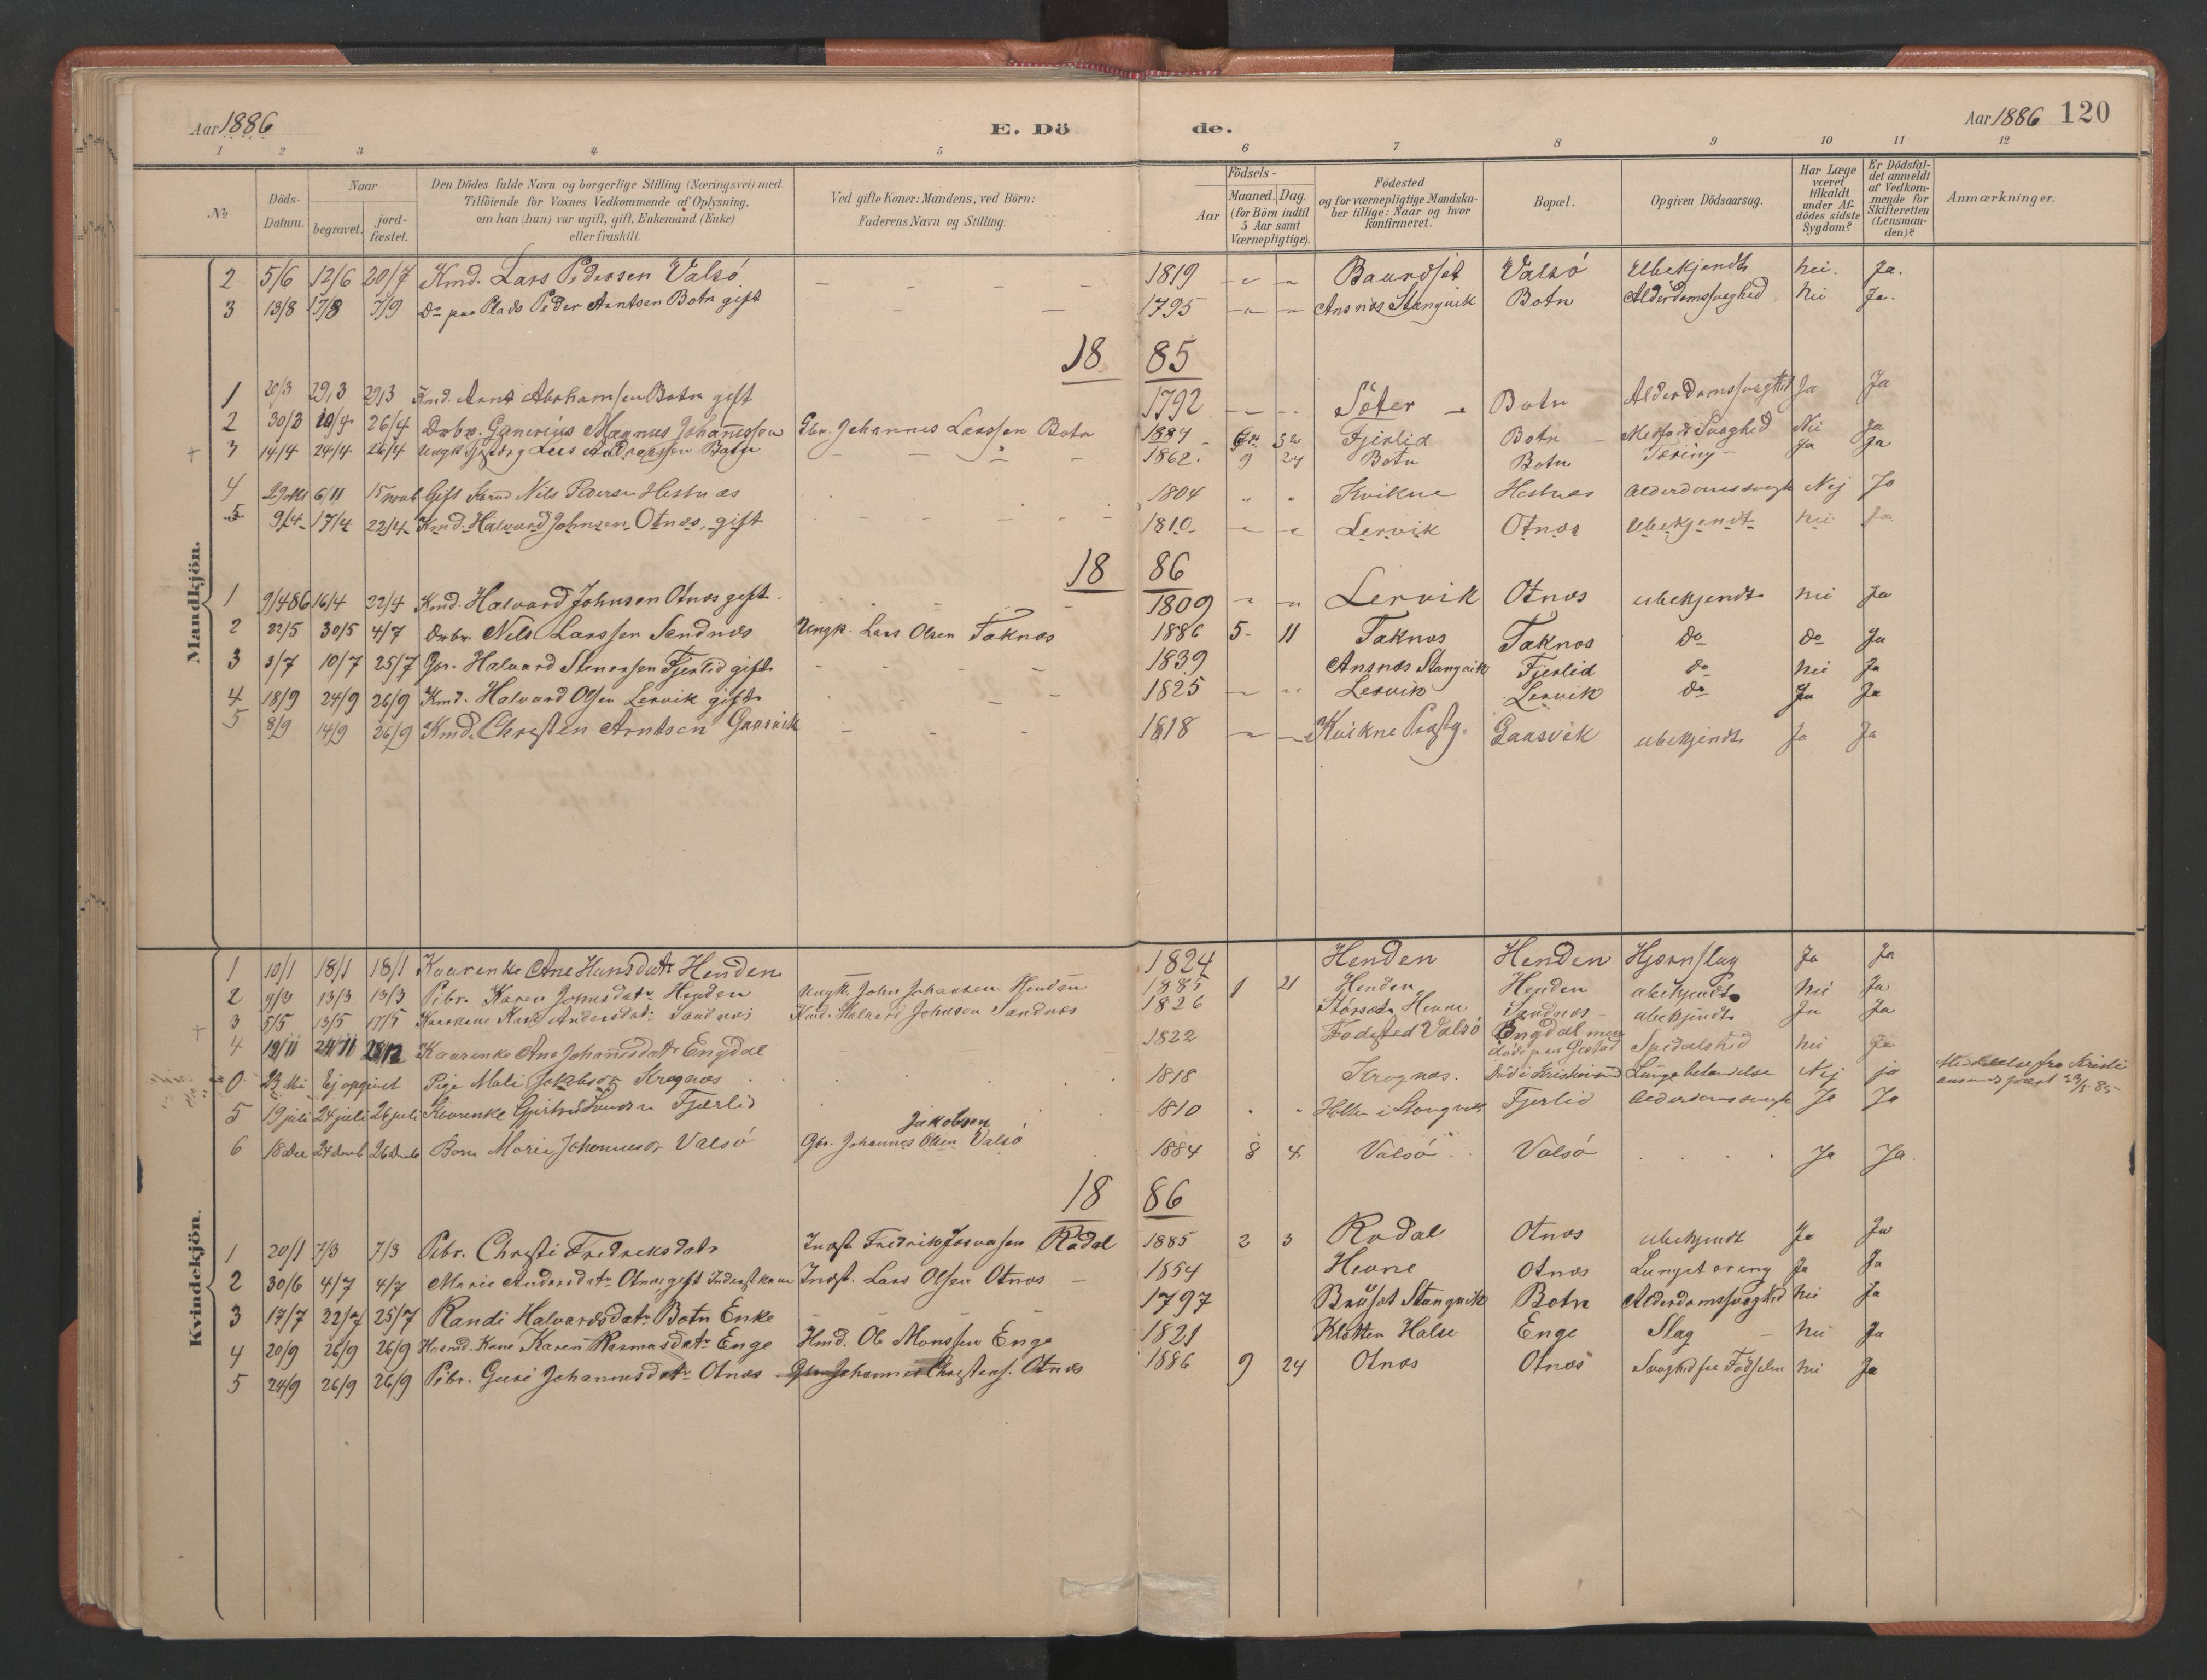 Aar 1886 E. Dö de. Aar 1886 120
1 2 3 4 5 6 7 8 9 10 11 12
№ Döds-Datum. Naar begravet. jord-fæstet. Den Dödes fulde Navn og borgerlige Stilling (Næringsvei) med Tilföiende for Voxnes Vedkommende af Oplysning, om han (hun) var ugift, gift, Enkemand (Enke) eller fraskilt. Ved gifte Koner: Mandens, ved Börn: Faderens Navn og Stilling. Födsels- Aar Maaned. Dag. (for Börn indtil 5 Aar samt Værnepligtige). Födested og for værnepligtige Mandskaber tillige: Naar og hvor Konfirmeret. Bopæl. Opgiven Dödsaarsag. Har Læge været tilkaldt under Afdödes sidste Sygdom? Er Dödsfaldet anmeldt af Vedkommende for Skifteretten (Lensmanden)? Anmærkninger.
Mandkjön.
2 5/6 12/6 20/7 Kmd. Lars Pedersen Valsö – – – – 1819 Baardset Valsö Ubekjendt nei. Ja.
3 13/8 17/8 7/9 Do paa Plads Peder Arntsen Botn gift – – 1795 Ansnæs Stangvik Botn Alderdomssvaghed nei Ja.
18 85
1 20/3 29/3 29/3 Kmd. Arnt Abrahamsen Botn gift 1792 Söter Botn Alderdomssvaghed Ja Ja
2 30/3 10/4 26/4 Drbr. Gunerius Magnus Johannessen Gbr. Johannes Larssen Botn 1884 Fjerlid Botn Medfødt Svaghed Nei Ja
3 14/4 24/4 26/4 Ungk. Lars Botn – – – – 1862. 9 24 Botn Botn Tæring – Ja Ja
4 6/11 15 novb Gift Nils Hestnæs 1804 " " Kvikne Hestnæs Alderdomssvagh Nej Ja
5 9/4 17/4 22/4 Kmd. Halvard Johnsen Otnæs, gift 1810 Lervik Otnæs Ubekjendt nei Ja
18 86
1 9/4 86 16/4 22/4 Kmd. Halvard Johnsen Otnæs gift 1809 Lervik Otnæs ubekjendt nei Ja
2 22/5 30/5 4/7 Drbr. Nils Larssen Sandnæs Ungk. Lars Olsen Taknæs 1886 5 11 Taknæs Taknæs do do Ja
3 3/7 10/7 25/7 Gbr. Halvard Stenersen Fjerlid gift 1839 Ansnæs Stangvik Fjerlid do nei Ja
4 18/9 24/9 26/9 Kmd. Halvard Olsen Lervik gift 1825 Lervik Lervik do Ja Ja
5 8/9 14/9 26/9 Kmd. Christen Arntsen Gaasvik – – – 1818 Kvikne Præstg. Gaasvik ubekjendt Ja Ja
Kvindekjön.
1 10/1 18/1 18/1 Kaarenke Ane Hansdatr Henden 1824 Henden Henden Hjernslag Ja Ja
2 9/3 13/3 13/3 Pibr. Karen Johnsdatr Henden Ungk. John Johansen Henden 1885 1 21 Henden Henden ubekjendt nei Ja
3 5/5 13/5 17/5 Andersdatr Sandnæs Kmd. Halvard Johnsen Sandnæs 1826 Hevne Sandnæs ubekjendt Ja Ja
4 19/11 24/11 Kaarenke Ane Johannesdatr Engdal – – 1822 Fødested Valsö Engdal men döde paa Spedalskhed nei Ja
0 23 Mai Ej opgivet Pige Mali Jakobsdtr Krognæs 1818 Krognæs. Död i Kristiansund Lungebetændelse Nej ja Meddelelse fra Kristiansunds præst 29/5 85
5 19 juli 24 juli 26 juli Kaarenke Fjerlid 1810 " " Holten i Stangvik Fjerlid Alderdomssvagh Ja Ja
Jakobsen
6 18 Dec 24 Decb 26 Decb Barn Marie Johannesdr Valsö Gbr. Johannes Olsen Valsö 1884 8 4 Valsö Valsö Ja Ja.
18 86
1 20/1 7/3 7/3 Pibr. Christi Fredriksdatr Indst. Fredrik Josvasen Rødal 1885 2 3 Rødal Otnæs ubekjendt Ja Ja
2 30/6 4/7 4/7 Marie Andersdatr Otnæs gift Inderstkone Indst. Lars Olsen Otnæs – 1854 Hevne Otnæs Lungetæring Ja Ja
3 17/7 22/7 25/7 Randi Halvardsdatr Botn Enke – – – – 1797 Stangvik Botn Alderdomssvaghed nei Ja
4 20/9 26/9 26/9 Husmd. Kone Karen Rasmusdatr Enge Hmd. Ole Monssen Enge 1821 Kløtten Halse Enge Slag – nei Ja
5 24/9 26/9 26/9 Pibr. Guri Johannesdatr Otnæs Johannes Christens. Otnæs 1886 9 24 Otnæs Otnæs Svaghed fra Fødselen nei Ja